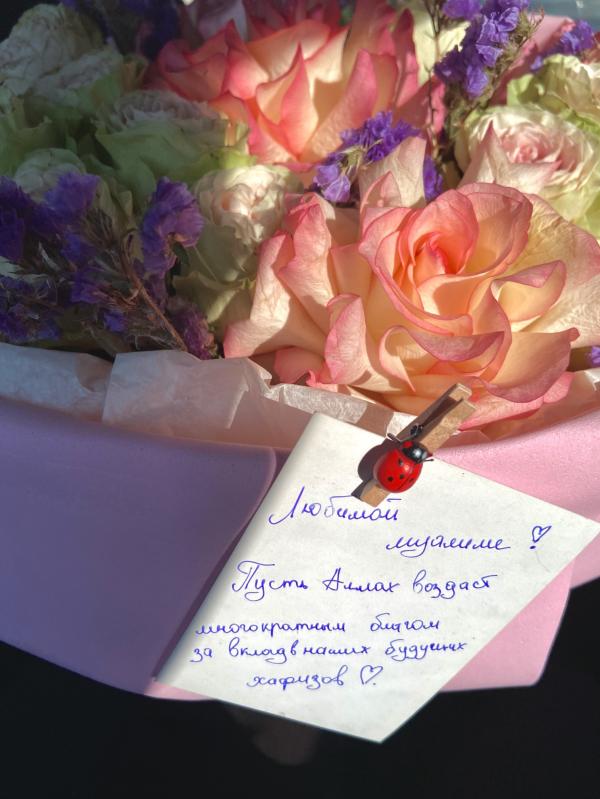 Любимой
муалиме !
Пусть Аллах воздаст
многократным благом
за вклад в наших будущих
хафизов ♡.